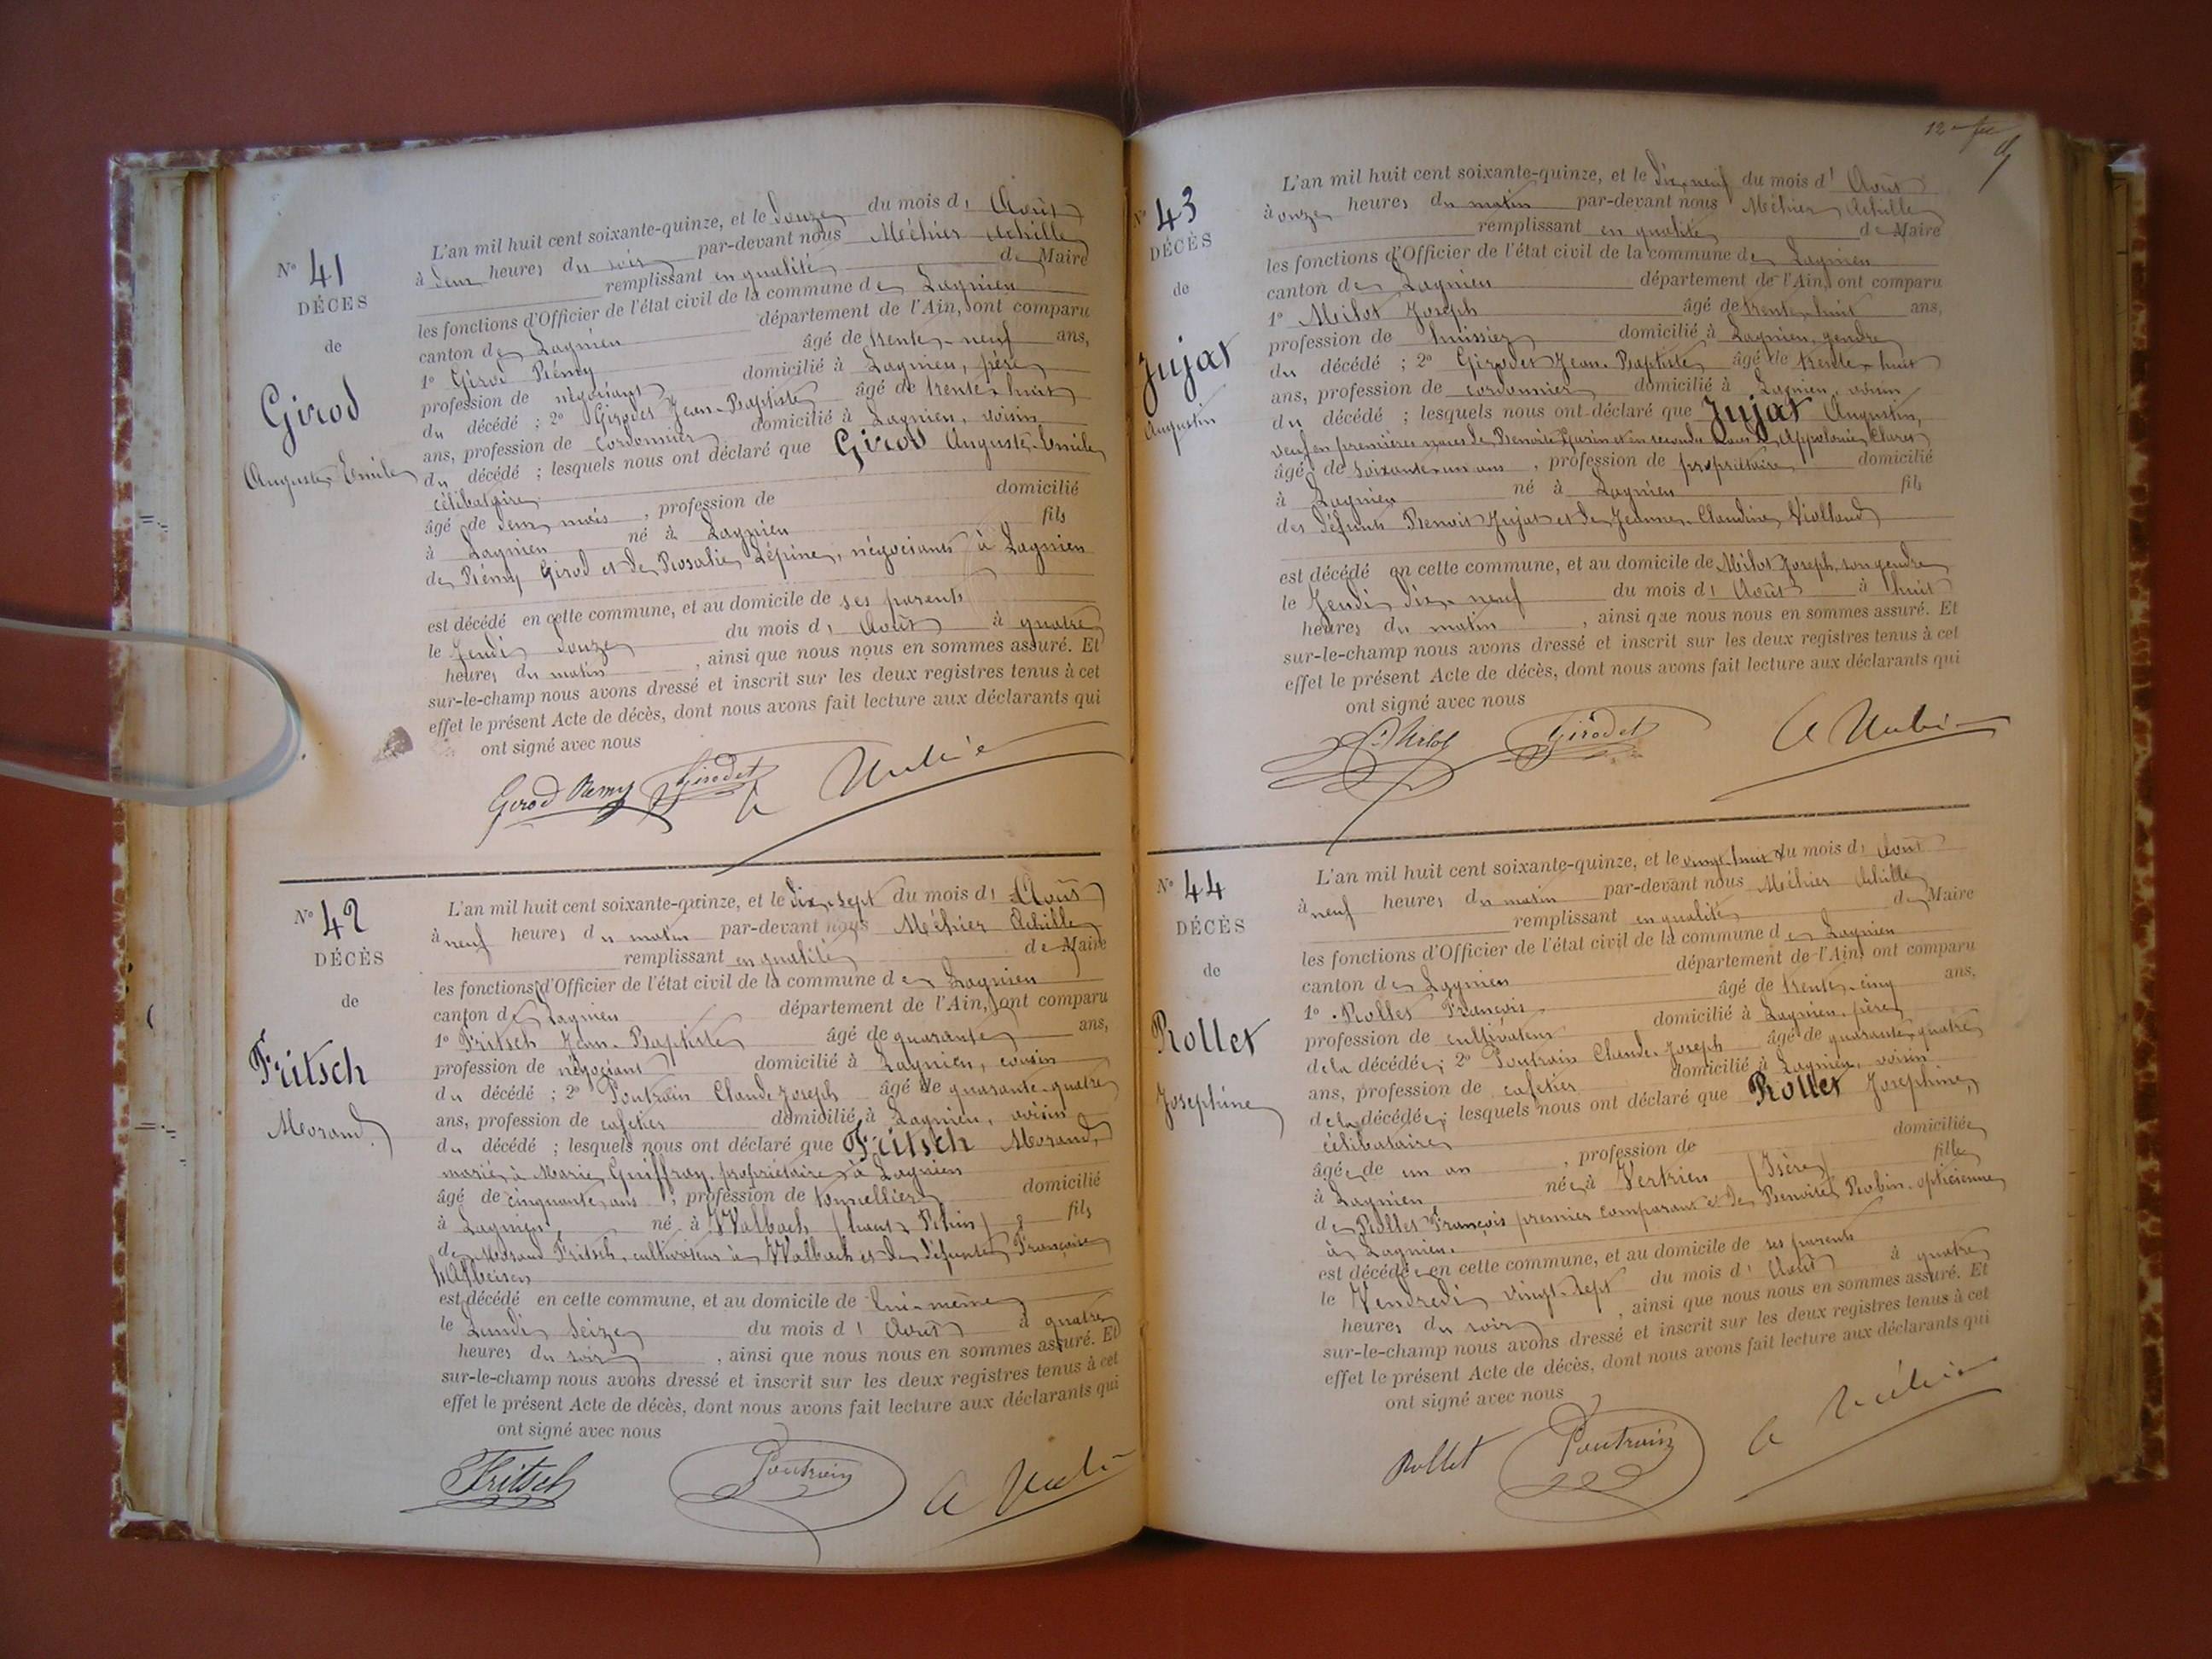 N° 41
DÉCES
de
Girod
Auguste Emile
L'an mil huit cent soixante-quinze, et le douze du mois d' Août
à deux heures du soir par-devant nous Méhier Achille
remplissant en qualité de Maire
les fonctions d'Officier de l'état civil de la commune de Lagnieu
canton de Lagnieu département de l'Ain, sont comparu
1° Girod Rémy âgé de trente-neuf ans,
profession de négociant domicilié à Lagnieu, père
du décédé ; 2° Girodet Jean-Baptiste âgé de trente-huit
ans, profession de cordonnier domicilié à Lagnieu, voisin
du décédé ; lesquels nous ont déclaré que Girod Auguste-Emile
célibataire
âgé de deux mois , profession de domicilié
à Lagnieu né à Lagnieu fils
de Rémy Girod et de Rosalie Lépine, négociants à Lagnieu
est décédé en cette commune, et au domicile de ses parents
le Jeudi douze du mois d' Août à quatre
heures du matin , ainsi que nous nous en sommes assuré. Et
sur-le-champ nous avons dressé et inscrit sur les deux registres tenus à cet
effet le présent Acte de décès, dont nous avons fait lecture aux déclarants qui
ont signé avec nous
Girod Remy Girodet A Méhier
N° 42
DÉCÈS
de
Fritsch
Morand
L'an mil huit cent soixante-quinze, et le dix-sept du mois d' Août
à neuf heures du matin par-devant nous Méhier Achille
remplissant en qualité de Maire
les fonctions d'Officier de l'état civil de la commune de Lagnieu
canton de Lagnieu département de l'Ain, sont comparu
1° Fritsch Jean-Baptiste âgé de quarante ans,
profession de négociant domicilié à Lagnieu, cousin
du décédé ; 2° Poutrain Claude Joseph âgé de quarante-quatre
ans, profession de cafetier domicilié à Lagnieu, voisin
du décédé ; lesquels nous ont déclaré que Fritsch Morand,
marié à Marie Guiffray, propriétaire à Lagnieu
âgé de cinquante ans , profession de tonnellier domicilié
à Lagnieu, né à Walbach (haut Rhin) fils
de Morand Fritsch, cultivateur à Walbach et de défunte Françoise
est décédé en cette commune, et au domicile de lui-même
le Lundi Seize du mois d' Août à quatre
heures du soir , ainsi que nous nous en sommes assuré. Et
sur-le-champ nous avons dressé et inscrit sur les deux registres tenus à cet
effet le présent Acte de décès, dont nous avons fait lecture aux déclarants qui
ont signé avec nous
Fritsch Poutrain A Méhier
N° 43
DÉCÈS
de
Jujat
Augustin
L'an mil huit cent soixante-quinze, et le dix-neuf du mois d' Août
à onze heures du matin par-devant nous Méhier Achille
remplissant en qualité de Maire
les fonctions d'Officier de l'état civil de la commune de Lagnieu
canton de Lagnieu département de l'Ain, ont comparu
1° Milot Joseph âgé de trente-huit ans,
profession de huissier domicilié à Lagnieu, gendre
du décédé ; 2° Girodet Jean-Baptiste âgé de trente-huit
ans, profession de cordonnier domicilié à Lagnieu, voisin
du décédé ; lesquels nous ont déclaré que Jujat Augustin,
veuf en premières noces de Benoite Garin et en seconde noces d'Appolonie Claret
âgé de soixante-un ans , profession de propriétaire domicilié
à Lagnieu né à Lagnieu fils
des défunts Benoit Jujat et de Jeanne-Claudine Violland
est décédé en cette commune, et au domicile de Milot Joseph, son gendre
le Jeudi dix-neuf du mois d' Août à huit
heures du matin , ainsi que nous nous en sommes assuré. Et
sur-le-champ nous avons dressé et inscrit sur les deux registres tenus à cet
effet le présent Acte de décès, dont nous avons fait lecture aux déclarants qui
ont signé avec nous
Milot Girodet A Méhier
N° 44
DÉCÈS
de
Rollet
Josephine
L'an mil huit cent soixante-quinze, et le vingt-huit du mois d' Août
à neuf heures du matin par-devant nous Méhier Achille
remplissant en qualité de Maire
les fonctions d'Officier de l'état civil de la commune de Lagnieu
canton de Lagnieu département de l'Ain, ont comparu
1° Rollet François âgé de trente-cinq ans,
profession de cultivateur domicilié à Lagnieu, père
de la décédée ; 2° Poutrain Claude-Joseph âgé de quarante-quatre
ans, profession de cafetier domicilié à Lagnieu, voisin
de la décédée ; lesquels nous ont déclaré que Rollet Josephine,
célibataire
âgée de un an , profession de domiciliée
à Lagnieu née à Vertrieu (Isère) fille
de Rollet François premier comparant et de Benoite Robin
à Lagnieu.
est décédée en cette commune, et au domicile de ses parents
le Vendredi vingt-sept du mois d' Août à quatre
heures du soir , ainsi que nous nous en sommes assuré. Et
sur-le-champ nous avons dressé et inscrit sur les deux registres tenus à cet
effet le présent Acte de décès, dont nous avons fait lecture aux déclarants qui
ont signé avec nous
Rollet Poutrain A Méhier